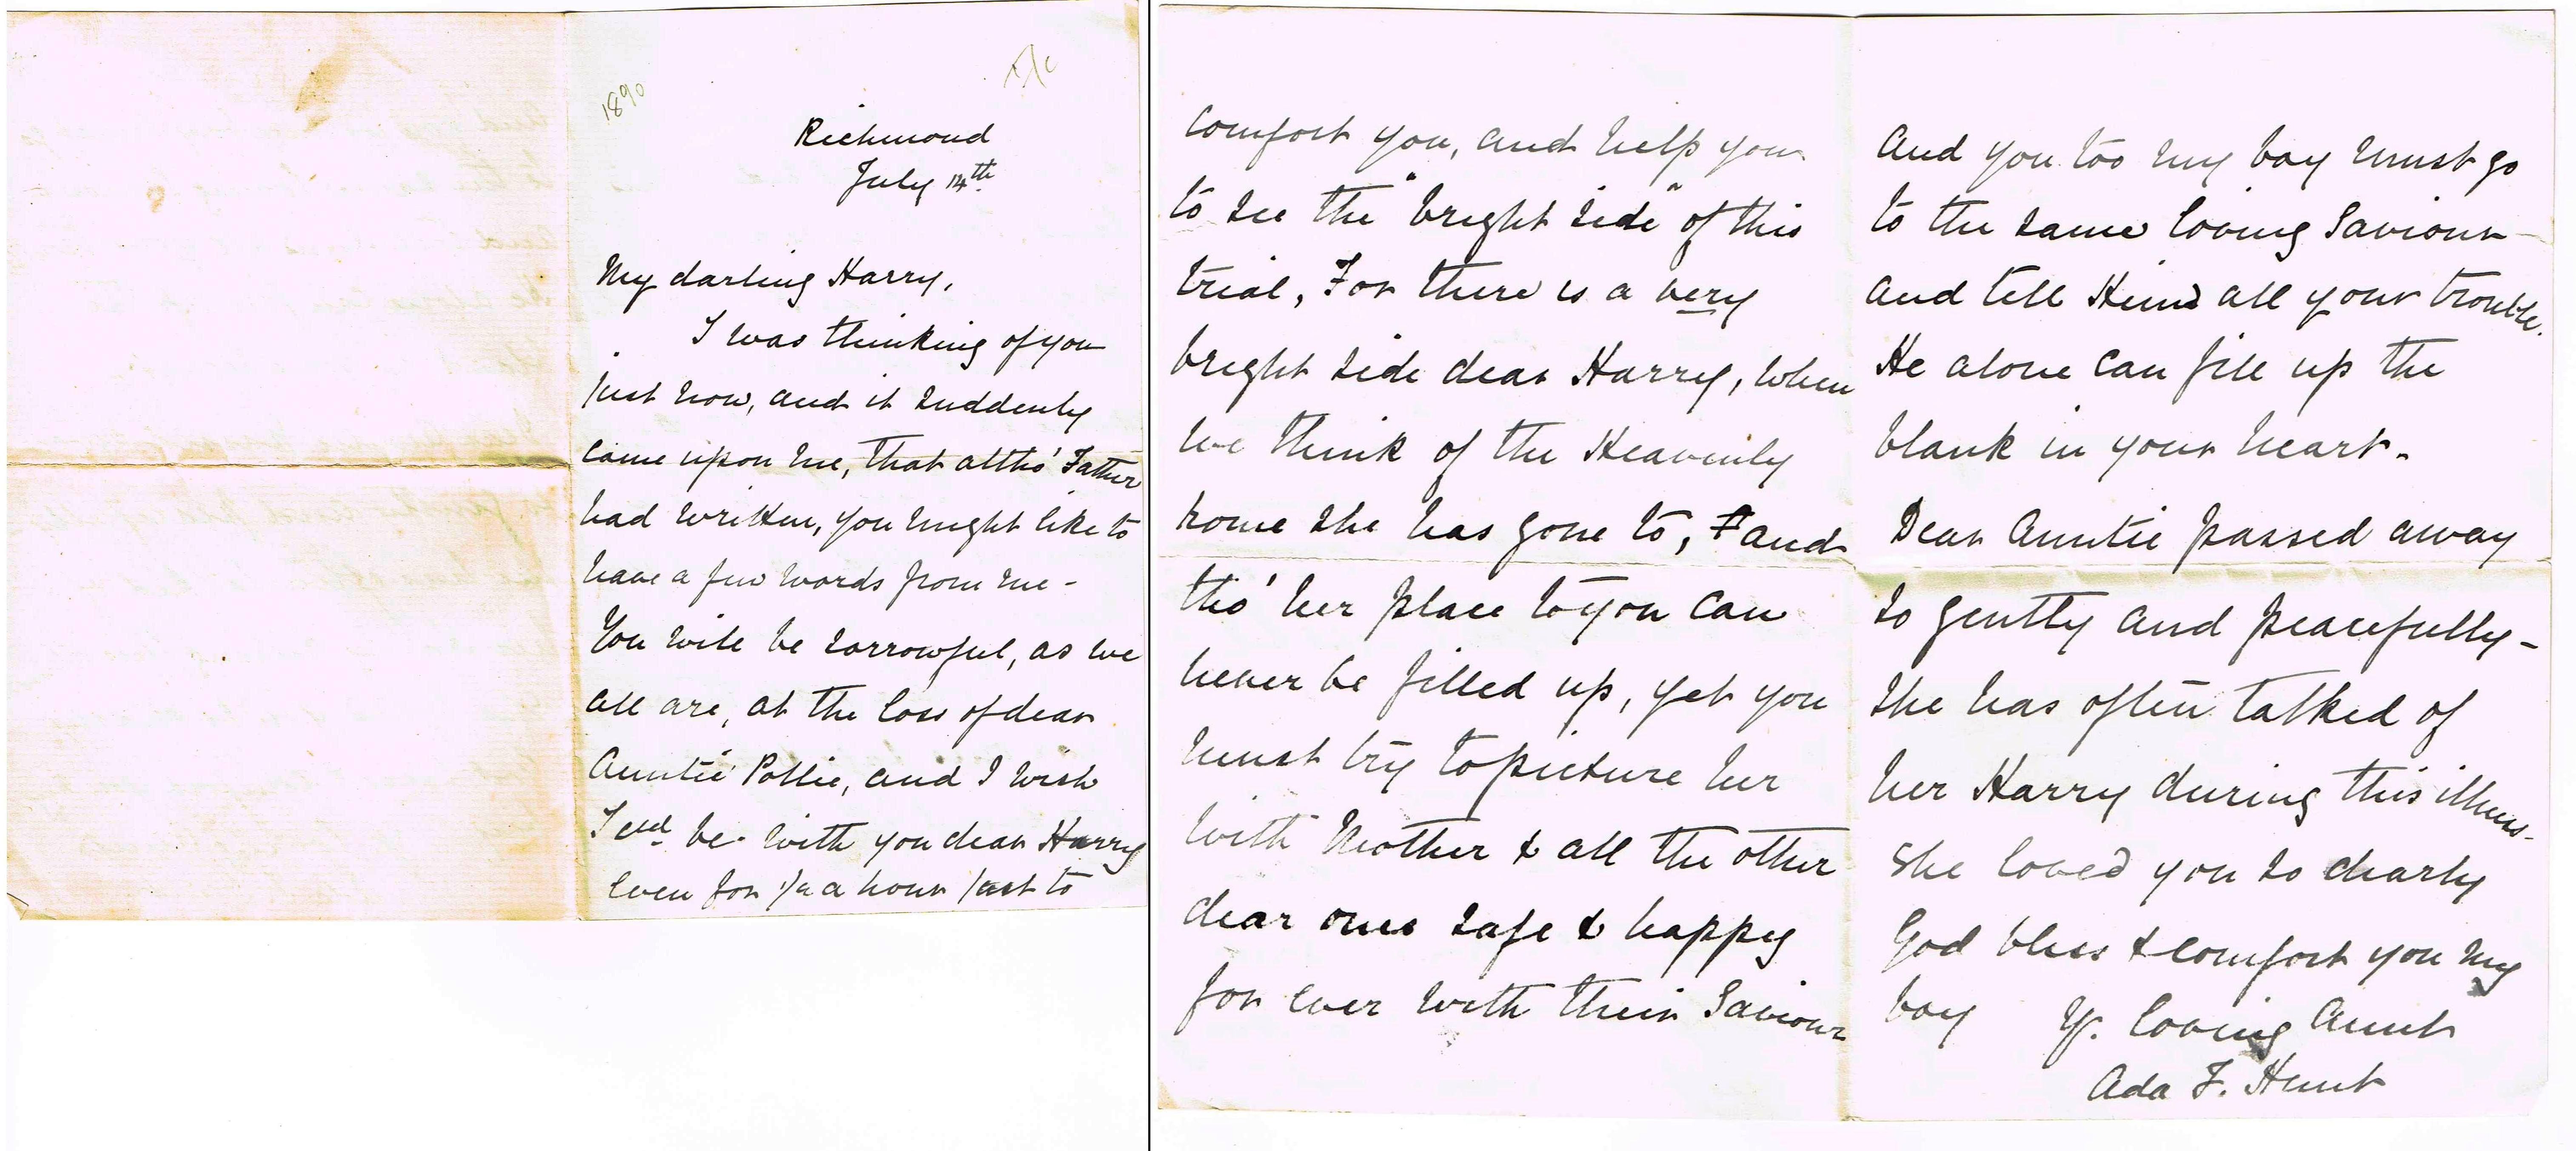 1890
Richmond
July 14th
My darling Harry,
I was thinking of you
just now, and it suddenly
came upon me, that altho' Father
had written, you might like to
have a few words from me -
You will be sorrowful, as we
all are, at the loss of dear
Auntie Pollie, and I wish
I cud be with you dear Harry
even for 1/2 a hour just to
comfort you, and help you
to see the "bright side" of this
trial, For there is a very
bright side dear Harry, when
we think of the Heavenly
home she has gone to, and
tho' her place to you can
never be filled up, yet you
must try to picture her
with Mother & all the other
dear ones safe & happy
for ever with their Saviour
And you too my boy must go
to the same loving Saviour
and tell Him all your trouble.
He alone can fill up the
blank in your heart.
Dear Auntie passed away
so gently and peacefully -
She has often talked of
her Harry during this illness -
She loved you so dearly
God bless & comfort you my
boy Yr. loving Aunt
Ada F. Hunt